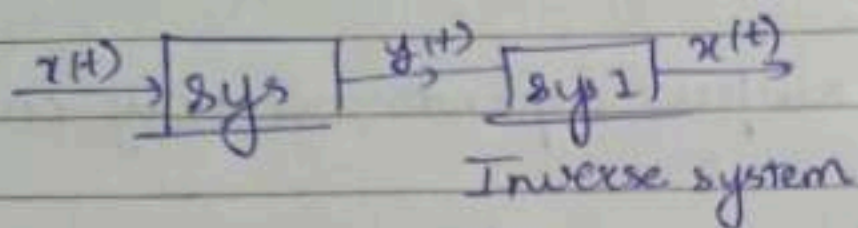 x(t) sys y(t) sys 1 x(t)
Inverse system